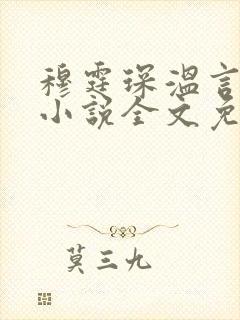 穆霆琛温言
小说全文免
莫三九